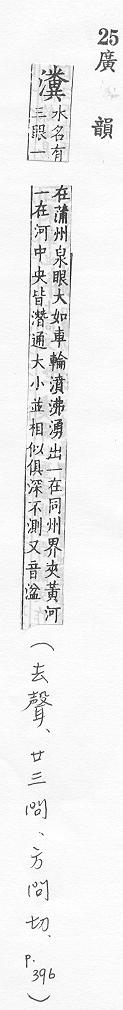 25廣韻
瀵水名有三眼一
在蒲州泉眼大如車輪濆沸湧出一在同州界夾黃河
一在河中央皆潛通大小並相似俱深不測又音盆
(去聲、廿三問、方問切、p.396)